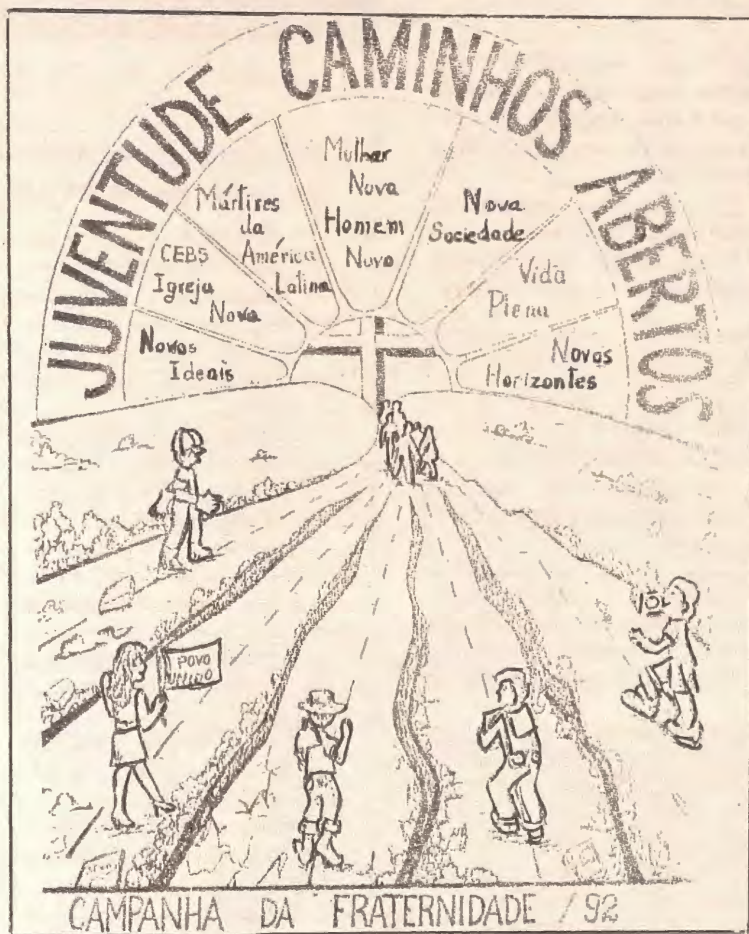 JUVENTUDE CAMINHOS ABERTOS
Novos
Ideais
CEBS
Igreja
Nova
Mártires
da
América
Latina
Mulher
Nova
Homem
Novo
Nova
Sociedade
Vida
Plena
Novos
Horizontes
POVO
UNIDO
CAMPANHA DA FRATERNIDADE / 92